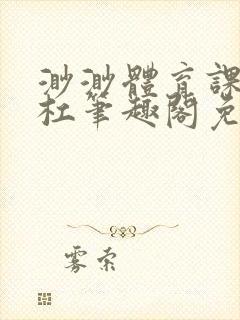 渺渺體育課
杜筆趣閣免
雾索